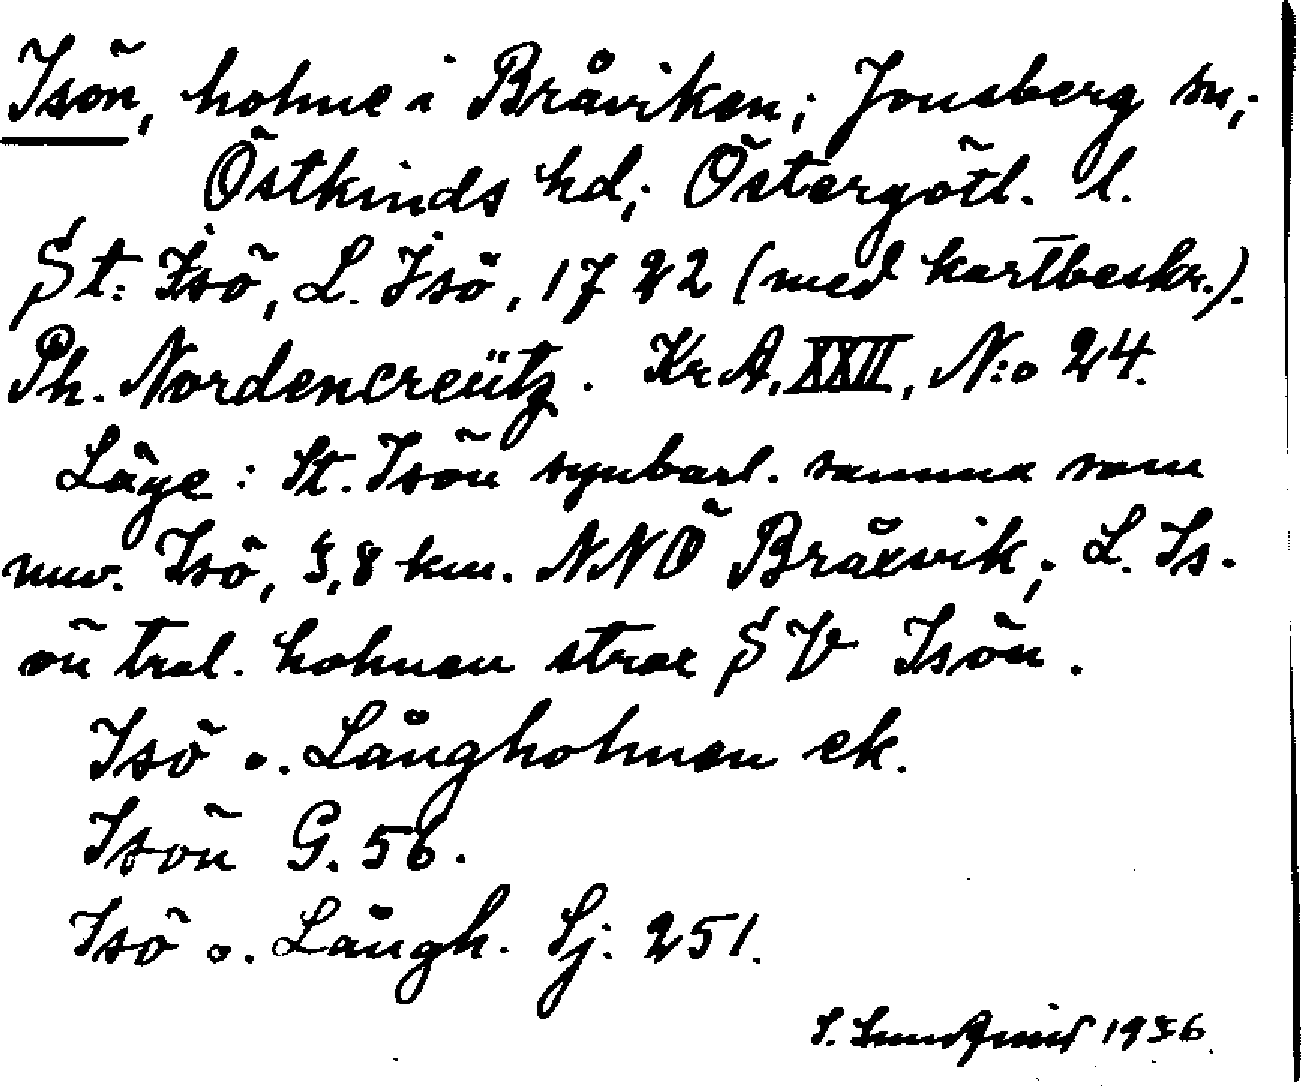 Isön, holme i Bråviken; Jonsberg sn,;
Östkinds hd; Östergötl. l.
St. Isö, L. Isö, 1722 (med kartbeskr.).
Ph. Nordencreütz. KrA, XXII, N:o 24.
Läge: St. Isön synbarl. samma som
nuv. Isö, 3,8 km. NNÖ Bråxvik; L. Is-
ön trol. holmen strax SV Isön.
Isö o. Långholmen ek.
Isön G. 56.
Isö o. Långh. Sj. 251.
S. 1936.